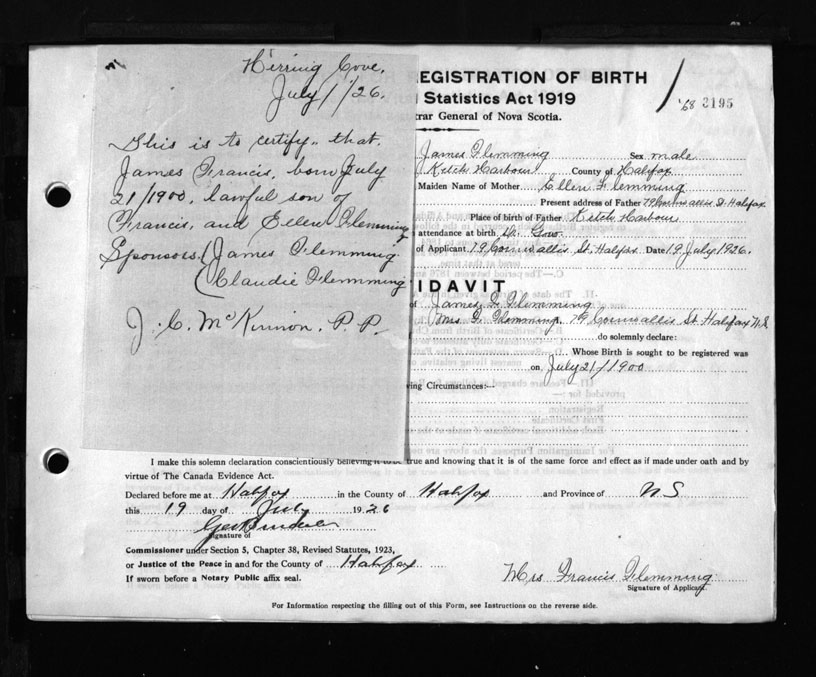 Herring Cove,
July 1/26.
This is to certify that
James Francis, born July
21/1900, lawful son of
Francis, and Ellen Flemming
Sponsors (James Flemming
(Claudie Flemming
J. C. McKinnon, P. P.
REGISTRATION OF BIRTH
Statistics Act 1919
trar General of Nova Scotia.
'68 3195
James Flemming Sex male
Ketch Harbour County of Halifax
Maiden Name of Mother Ellen Flemming
Present address of Father 79 Cornwallis St Halifax
Place of birth of Father Ketch Harbour
n attendance at birth Dr. Gow
of Applicant 79 Cornwallis St. Halifax Date 19 July 1926.
IDAVIT
of James F Flemming
Mrs F. Flemming 79 Cornwallis St. Halifax N.S
do solemnly declare:
1. Whose Birth is sought to be registered was
on July 21/1900
ving Circumstances:—
I make this solemn declaration conscientiously believing it to be true and knowing that it is of the same force and effect as if made under oath and by
virtue of The Canada Evidence Act.
Declared before me at Halifax in the County of Halifax and Province of N S
this 19 day of July 1926
Signature of
Commissioner under Section 5, Chapter 38, Revised Statutes, 1923,
or Justice of the Peace in and for the County of Halifax
If sworn before a Notary Public affix seal.
Mrs Francis Flemming
Signature of Applicant.
For Information respecting the filling out of this Form, see Instructions on the reverse side.